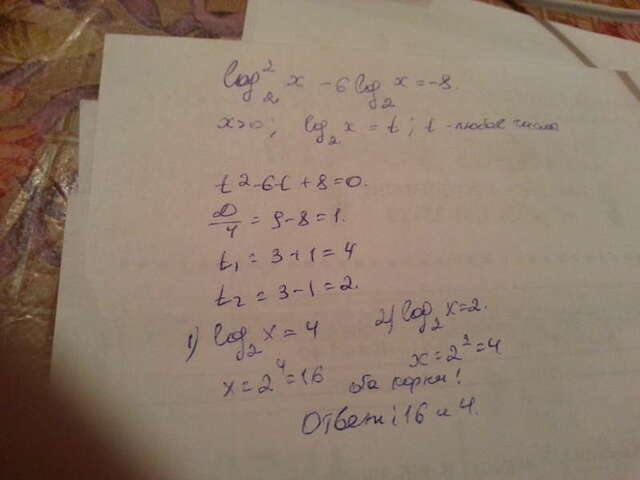 log₂² x - 6 log₂ x = -8.
x>0; log₂ x = t; t - любое число
t² - 6t + 8 = 0.
D/4 = 9 - 8 = 1.
t₁ = 3 + 1 = 4
t₂ = 3 - 1 = 2.
1) log₂ x = 4 2) log₂ x = 2.
x = 2⁴ = 16 x = 2² = 4
оба корни!
Ответ: 16 и 4.